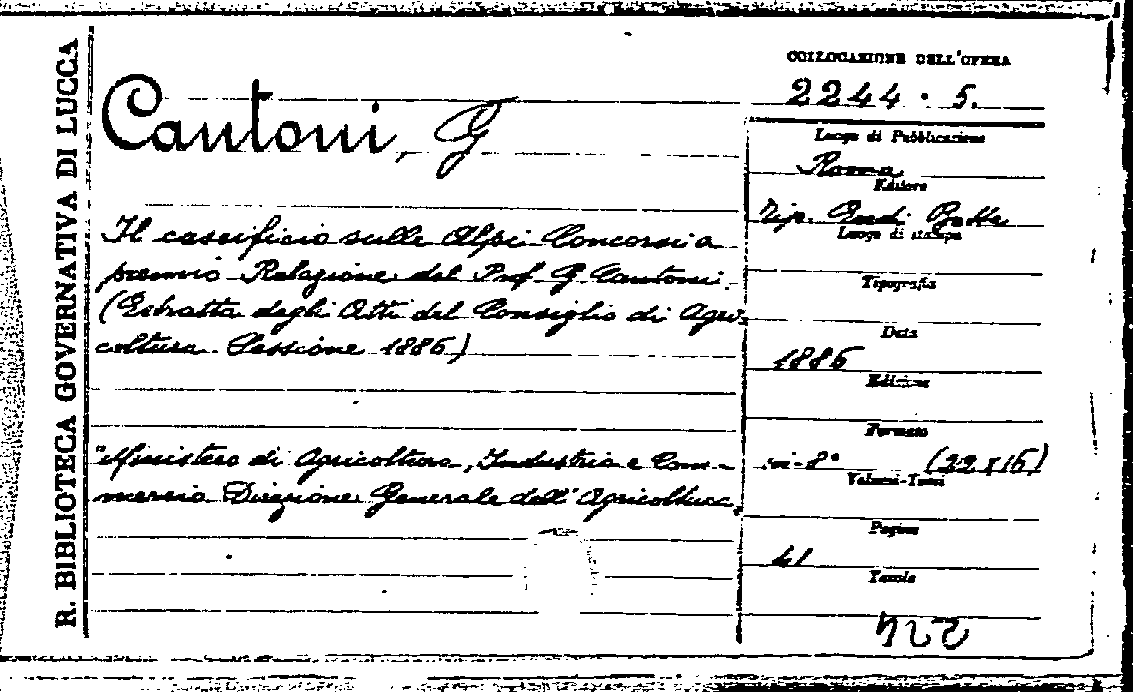 R. BIBLIOTECA GOVERNATIVA DI LUCCA
Cantoni, G
Il caseificio sulle Alpi Concorsi a
premio Relazione del Prof G Cantoni.
(Estratto degli Atti del Consiglio di Agri-
coltura Sessione 1886)
"Ministero di Agricoltura, Industria e Com-
mercio Direzione Generale dell'Agricoltura,
COLLOCAZIONE DELL'OPERA
2244 · 5.
Luogo di Pubblicazione
Roma
Editore
Tip. Eredi Botta
Luogo di stampa
Tipografia
Data
1886
Edizione
Formato
in-8° (22x16)
Volumi-Tomi
Pagine
41
Tavole